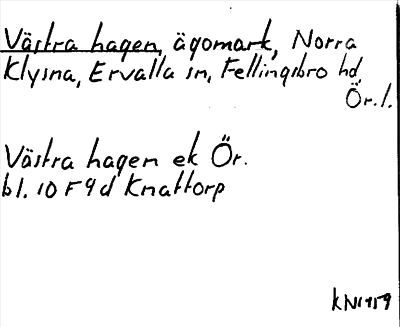 Västra hagen, ägomark, Norra
Klysna, Ervalla sn, Fellingsbro hd,
Ör.l.
Västra hagen ek Ör.
bl. 10 F 9 d Knattorp